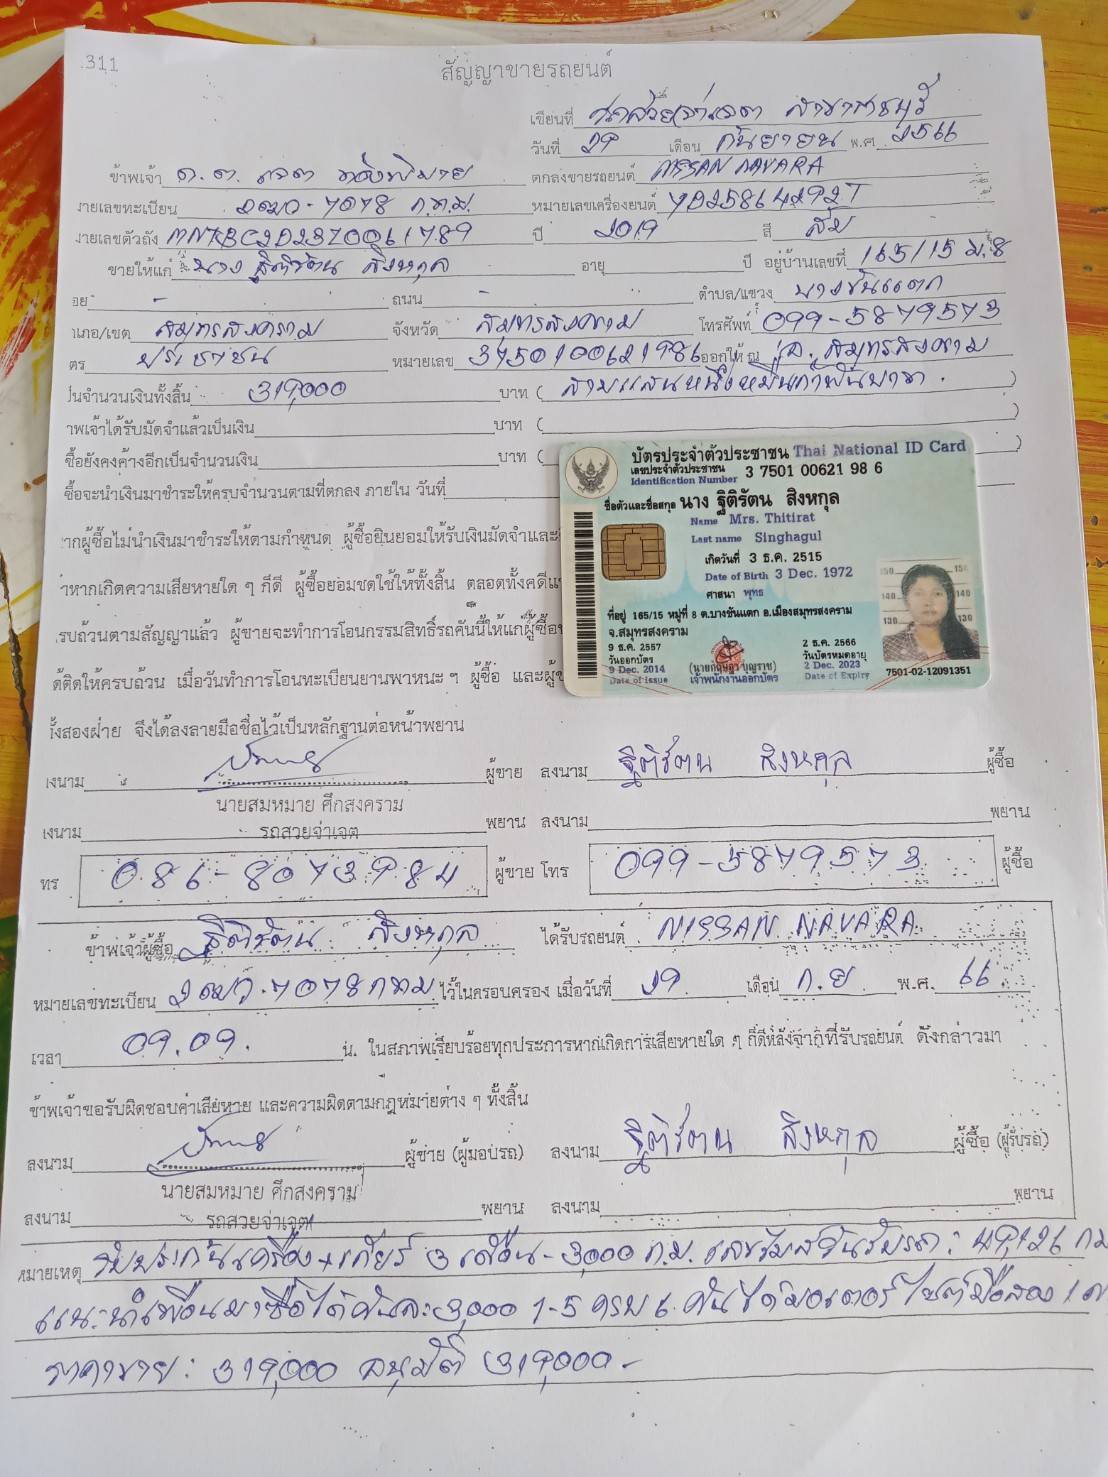 .311
สัญญาขายรถยนต์
เขียนที่ สาขาราชบุรี
วันที่ 29 เดือน กันยายน พ.ศ. 2566
ข้าพเจ้า ด.ต. เจต ตกลงขายรถยนต์ NISSAN NAVARA
ายเลขทะเบียน 2ฒว-7078 ก.ท.ม. หมายเลขเครื่องยนต์ YD25864292T
ายเลขตัวถัง ปี 2019 สี ส้ม
ขายให้แก่ นาง ฐิติรัตน สิงหกุล อายุ ปี อยู่บ้านเลขที่ 165/15 ม.8
อย - ถนน - ตำบล/แขวง บางขันแตก
าเภอ/เขต สมุทรสงคราม จังหวัด สมุทรสงคราม โทรศัพท์ 099-5879573
ตร ประชาชน หมายเลข 3750100621986 ออกให้ ณ จ. สมุทรสงคราม
ป็นจำนวนเงินทั้งสิ้น 319,000 บาท ( สามแสนหนึ่งหมื่นเก้าพันบาท . )
าพเจ้าได้รับมัดจำแล้วเป็นเงิน บาท ( )
ซื้อยังคงค้างอีกเป็นจำนวนเงิน บาท ( )
ซื้อจะนำเงินมาชำระให้ครบจำนวนตามที่ตกลง ภายใน วันที่
ากผู้ซื้อไม่นำเงินมาชำระให้ตามกำหนด ผู้ซื้อยินยอมให้รับเงินมัดจำและ
าหากเกิดความเสียหายใด ๆ ก็ดี ผู้ซื้อยอมชดใช้ให้ทั้งสิ้น ตลอดทั้งคดีแ
รบถ้วนตามสัญญาแล้ว ผู้ขายจะทำการโอนกรรมสิทธิ์รถคันนี้ให้แก่ผู้ซื้อ
ต้ติดให้ครบถ้วน เมื่อวันทำการโอนทะเบียนยานพาหนะ ฯ ผู้ซื้อ และผู้ข
ั้งสองฝ่าย จึงได้ลงลายมือชื่อไว้เป็นหลักฐานต่อหน้าพยาน
บัตรประจำตัวประชาชน Thai National ID Card
เลขประจำตัวประชาชน 3 7501 00621 98 6
Identification Number
ชื่อตัวและชื่อสกุล นาง ฐิติรัตน สิงหกุล
Name Mrs. Thitirat
Last name Singhagul
เกิดวันที่ 3 ธ.ค. 2515
Date of Birth 3 Dec. 1972
ศาสนา พุทธ
ที่อยู่ 165/15 หมู่ที่ 8 ต.บางขันแตก อ.เมืองสมุทรสงคราม
จ.สมุทรสงคราม
9 ธ.ค. 2557
วันออกบัตร
9 Dec. 2014
Date of Issue
เจ้าพนักงานออกบัตร
2 ธ.ค. 2566
วันบัตรหมดอายุ
2 Dec. 2023
Date of Expiry
150 150
140 140
130 130
7501-02-12091351
งนาม ผู้ขาย ลงนาม ฐิติรัตน สิงหกุล ผู้ซื้อ
นายสมหมาย ศึกสงคราม
งนาม รถสวยจ่าเจต พยาน ลงนาม พยาน
ทร 086-8073984 ผู้ขาย โทร 099-5879573 ผู้ซื้อ
ข้าพเจ้าผู้ซื้อ ฐิติรัตน สิงหกุล ได้รับรถยนต์ NISSAN NAVARA
หมายเลขทะเบียน 2ฒว-7078 กทม ไว้ในครอบครอง เมื่อวันที่ 29 เดือน ก.ย พ.ศ. 66
เวลา 09.09. น. ในสภาพเรียบร้อยทุกประการหากเกิดการเสียหายใด ๆ ก็ดีหลังจากที่รับรถยนต์ ดังกล่าวมา
ข้าพเจ้าขอรับผิดชอบค่าเสียหาย และความผิดตามกฎหมายต่าง ๆ ทั้งสิ้น
ลงนาม ผู้ขาย (ผู้มอบรถ) ลงนาม ฐิติรัตน สิงหกุล ผู้ซื้อ (ผู้รับรถ)
นายสมหมาย ศึกสงคราม
ลงนาม รถสวยจ่าเจต พยาน ลงนาม พยาน
หมายเหตุ รับประกันเครื่อง+เกียร์ 3 เดือน - 3,000 ก.ม. วันรับรถ :
แนะนำเพื่อนมาซื้อได้คันละ 3,000 1-5 ครบ 6 คันได้มอเตอร์ไซค์มือสอง 1
ราคาขาย : 319,000 อนุมัติ 319,000.-